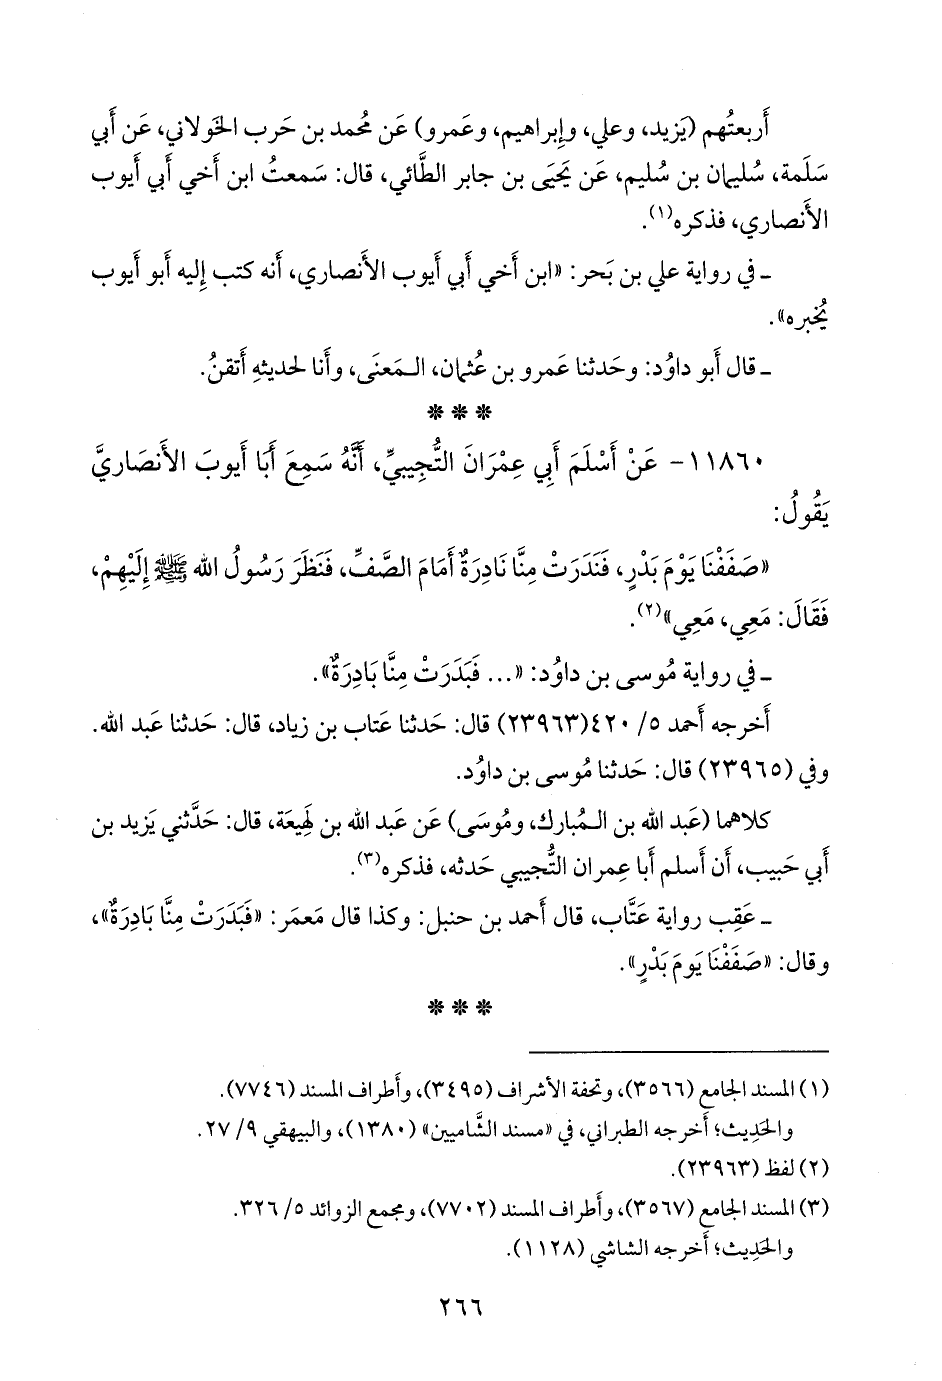 أَربعتُهم (يَزيد، وعلي، وإِبراهيم، وعَمرو) عَن مُحمد بن حَرب الخَولاني، عَن أَبي
سَلَمة، سُليمان بن سُليم، عَن يَحيَى بن جابر الطَّائي، قال: سَمعتُ ابن أَخي أَبي أَيوب
الأَنصاري، فذكره(١).
ـ في رواية علي بن بَحر: «ابن أَخي أَبي أَيوب الأَنصاري، أَنه كتب إِليه أَبو أَيوب
يُخبره».
ـ قال أَبو داوُد: وحَدثنا عَمرو بن عُثمان، الـمَعنَى، وأَنا لحديثهِ أَتقنُ.
* * *
١١٨٦٠- عَنْ أَسْلَمَ أَبِي عِمْرَانَ التُّجِيبِيِّ، أَنَّهُ سَمِعَ أَبَا أَيوبَ الأَنصَارِيَّ
يَقُولُ:
«صَفَفْنَا يَوْمَ بَدْرٍ، فَنَدَرَتْ مِنَّا نَادِرَةٌ أَمَامَ الصَّفِّ، فَنَظَرَ رَسُولُ الله ﷺ إِلَيْهِمْ،
فَقَالَ: مَعِي، مَعِي»(٢).
ـ في رواية مُوسى بن داوُد: «... فَبَدَرَتْ مِنَّا بَادِرَةٌ».
أَخرجه أَحمد ٥/ ٤٢٠(٢٣٩٦٣) قال: حَدثنا عَتاب بن زياد، قال: حَدثنا عَبد الله.
وفي (٢٣٩٦٥) قال: حَدثنا مُوسى بن داوُد.
كلاهما (عَبد الله بن الـمُبارك، ومُوسَى) عَن عَبد الله بن لَهِيعَة، قال: حَدَّثني يَزيد بن
أَبي حَبيب، أَن أَسلم أَبا عِمران التُّجيبي حَدثه، فذكره(٣).
ـ عَقِب رواية عَتَّاب، قال أَحمد بن حنبل: وكذا قال مَعمَر: «فَبَدَرَتْ مِنَّا بَادِرَةٌ»،
وقال: «صَفَفْنَا يَومَ بَدْرٍ».
* * *
(١) المسند الجامع (٣٥٦٦)، وتحفة الأشراف (٣٤٩٥)، وأَطراف المسند (٧٧٤٦).
والحَدِيث؛ أَخرجه الطبراني، في «مسند الشَّاميين» (١٣٨٠)، والبيهقي ٩/ ٢٧.
(٢) لفظ (٢٣٩٦٣).
(٣) المسند الجامع (٣٥٦٧)، وأَطراف المسند (٧٧٠٢)، ومجمع الزوائد ٥/ ٣٢٦.
والحَدِيث؛ أَخرجه الشاشي (١١٢٨).
٢٦٦